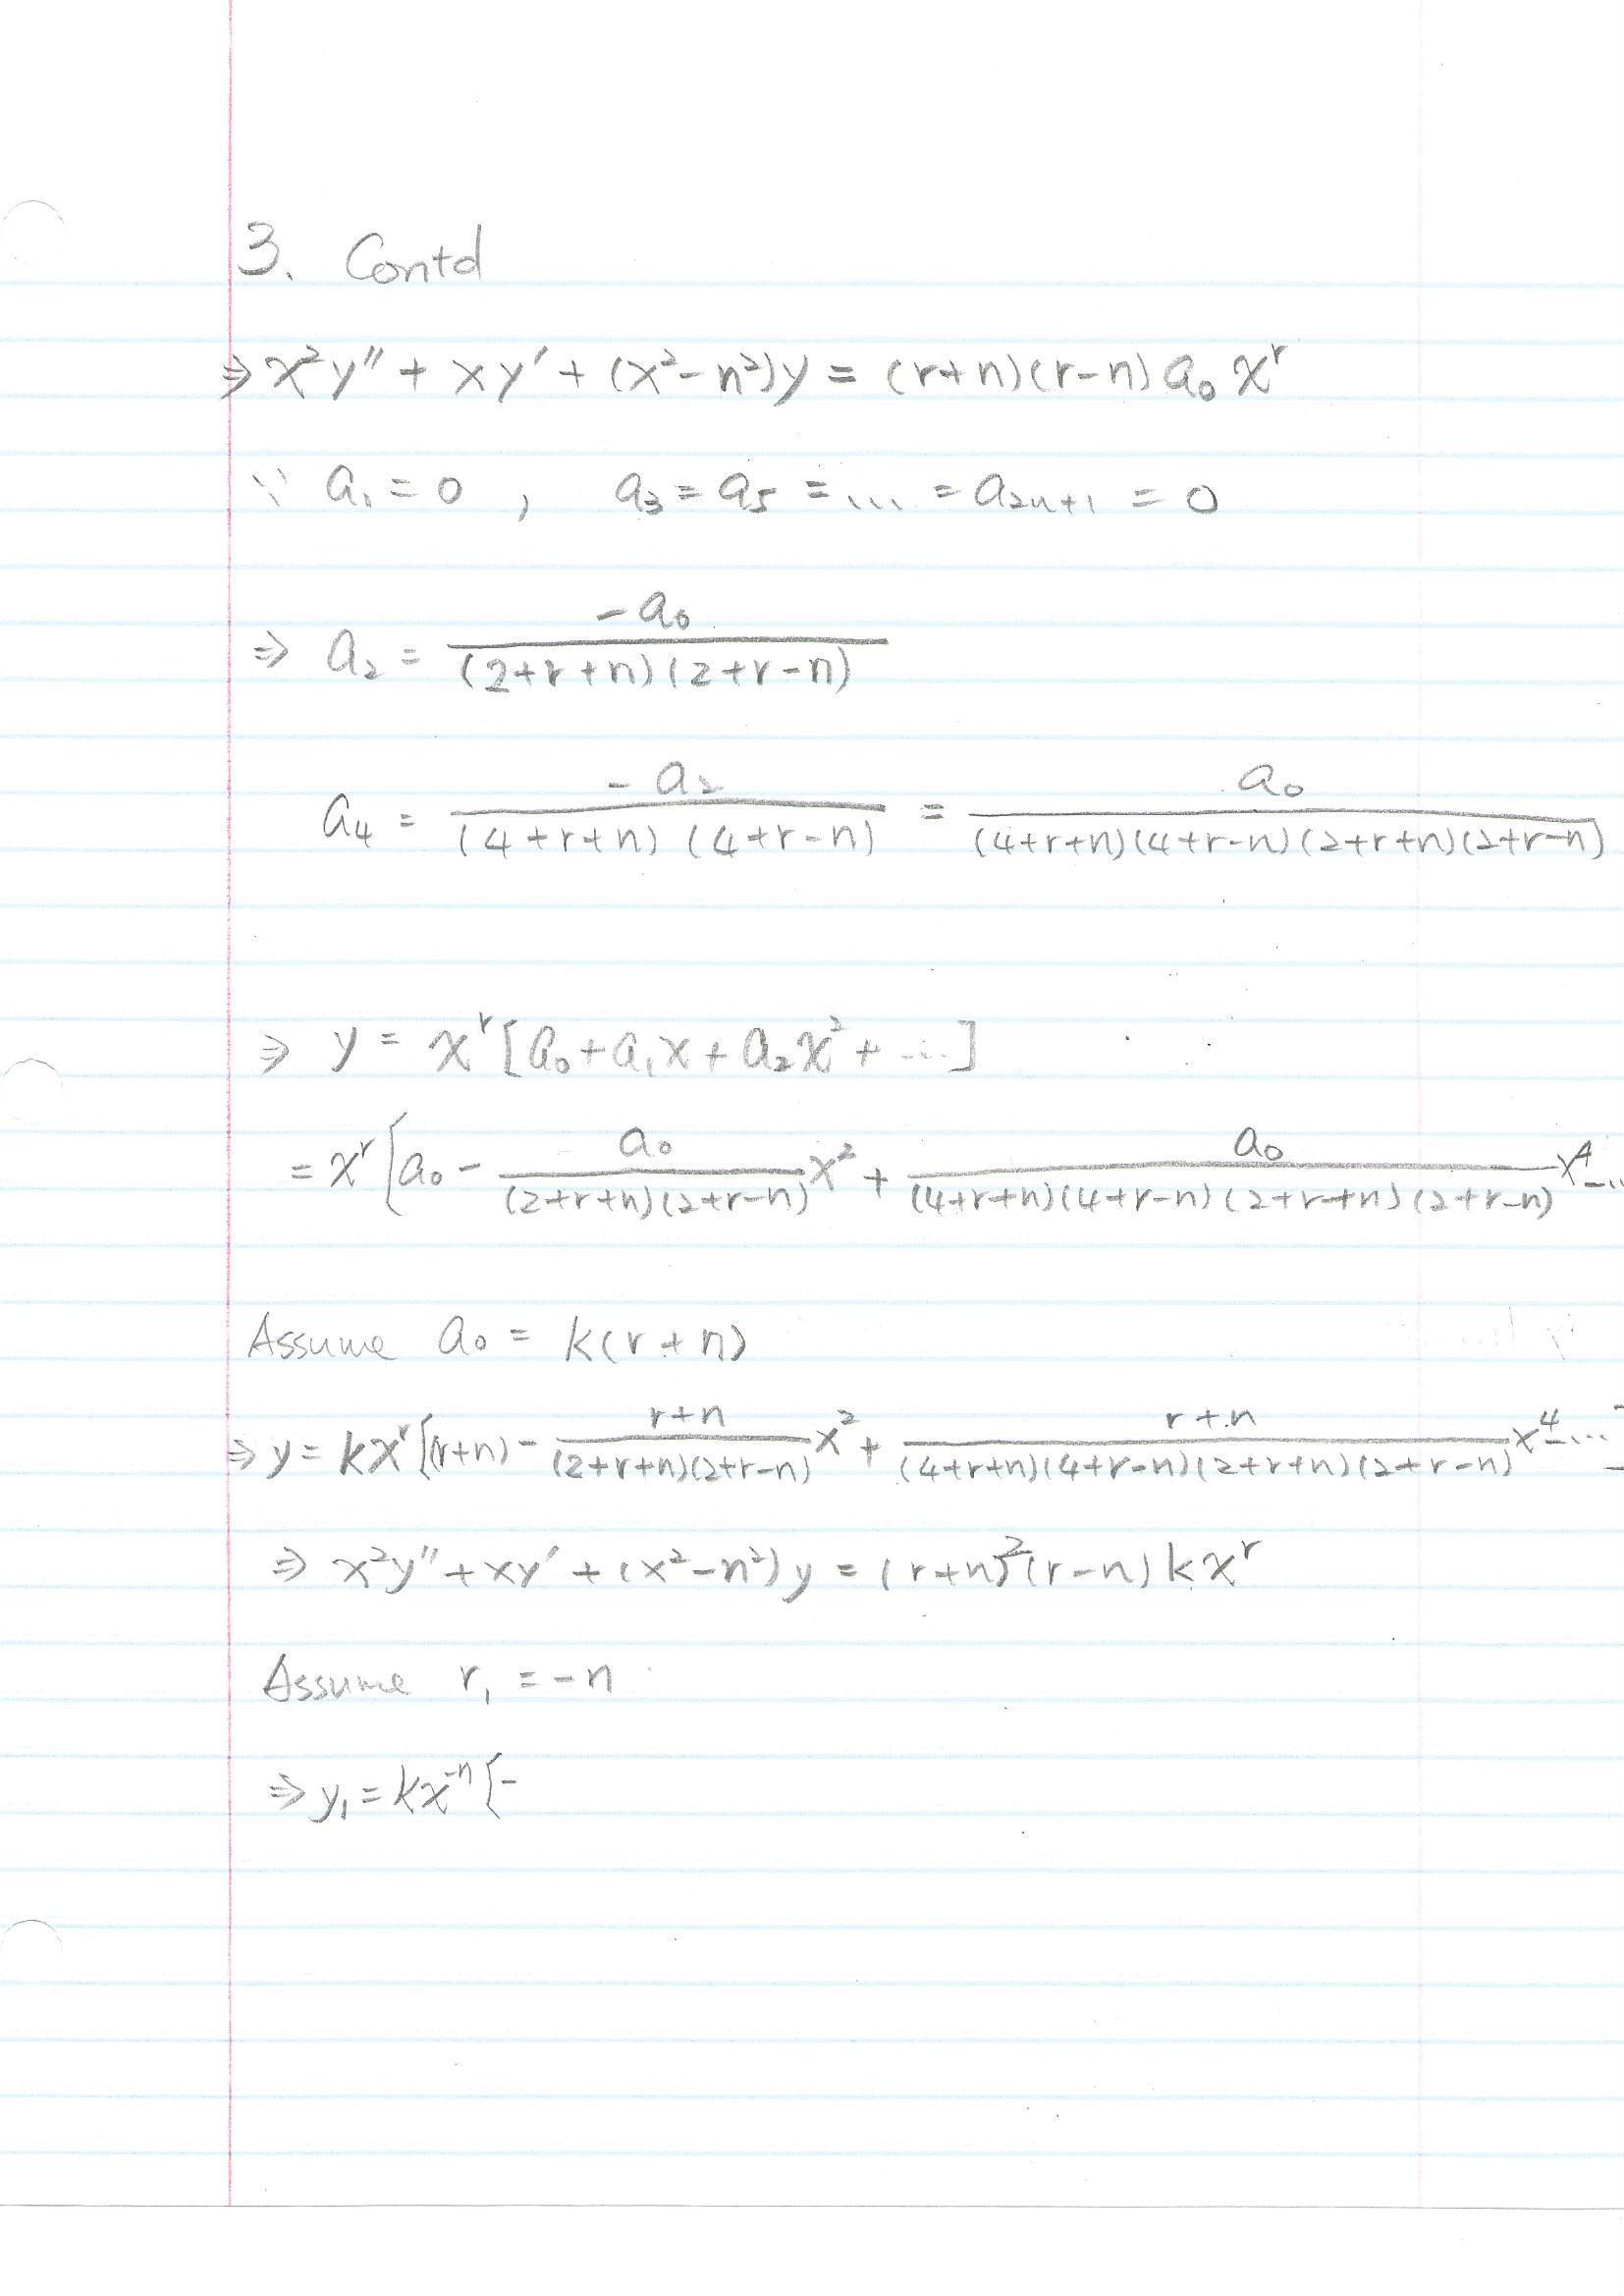 3. Contd
⇒ x²y'' + xy' + (x²-n²)y = (r+n)(r-n) a₀ xʳ
∵ a₁ = 0 , a₃ = a₅ = ... = a₂ₙ₊₁ = 0
⇒ a₂ = -a₀ / (2+r+n)(2+r-n)
a₄ = -a₂ / (4+r+n) (4+r-n) = a₀ / (4+r+n)(4+r-n)(2+r+n)(2+r-n)
⇒ y = xʳ [a₀ + a₁x + a₂x² + ...]
= xʳ [a₀ - a₀ / (2+r+n)(2+r-n) x² + a₀ / (4+r+n)(4+r-n)(2+r+n)(2+r-n) x⁴ - ...
Assume a₀ = k(r+n)
⇒ y = kxʳ [(r+n) - r+n / (2+r+n)(2+r-n) x² + r+n / (4+r+n)(4+r-n)(2+r+n)(2+r-n) x⁴ - ... ]
⇒ x²y'' + xy' + (x²-n²)y = (r+n)²(r-n) k xʳ
Assume r₁ = -n
⇒ y₁ = kx⁻ⁿ [-